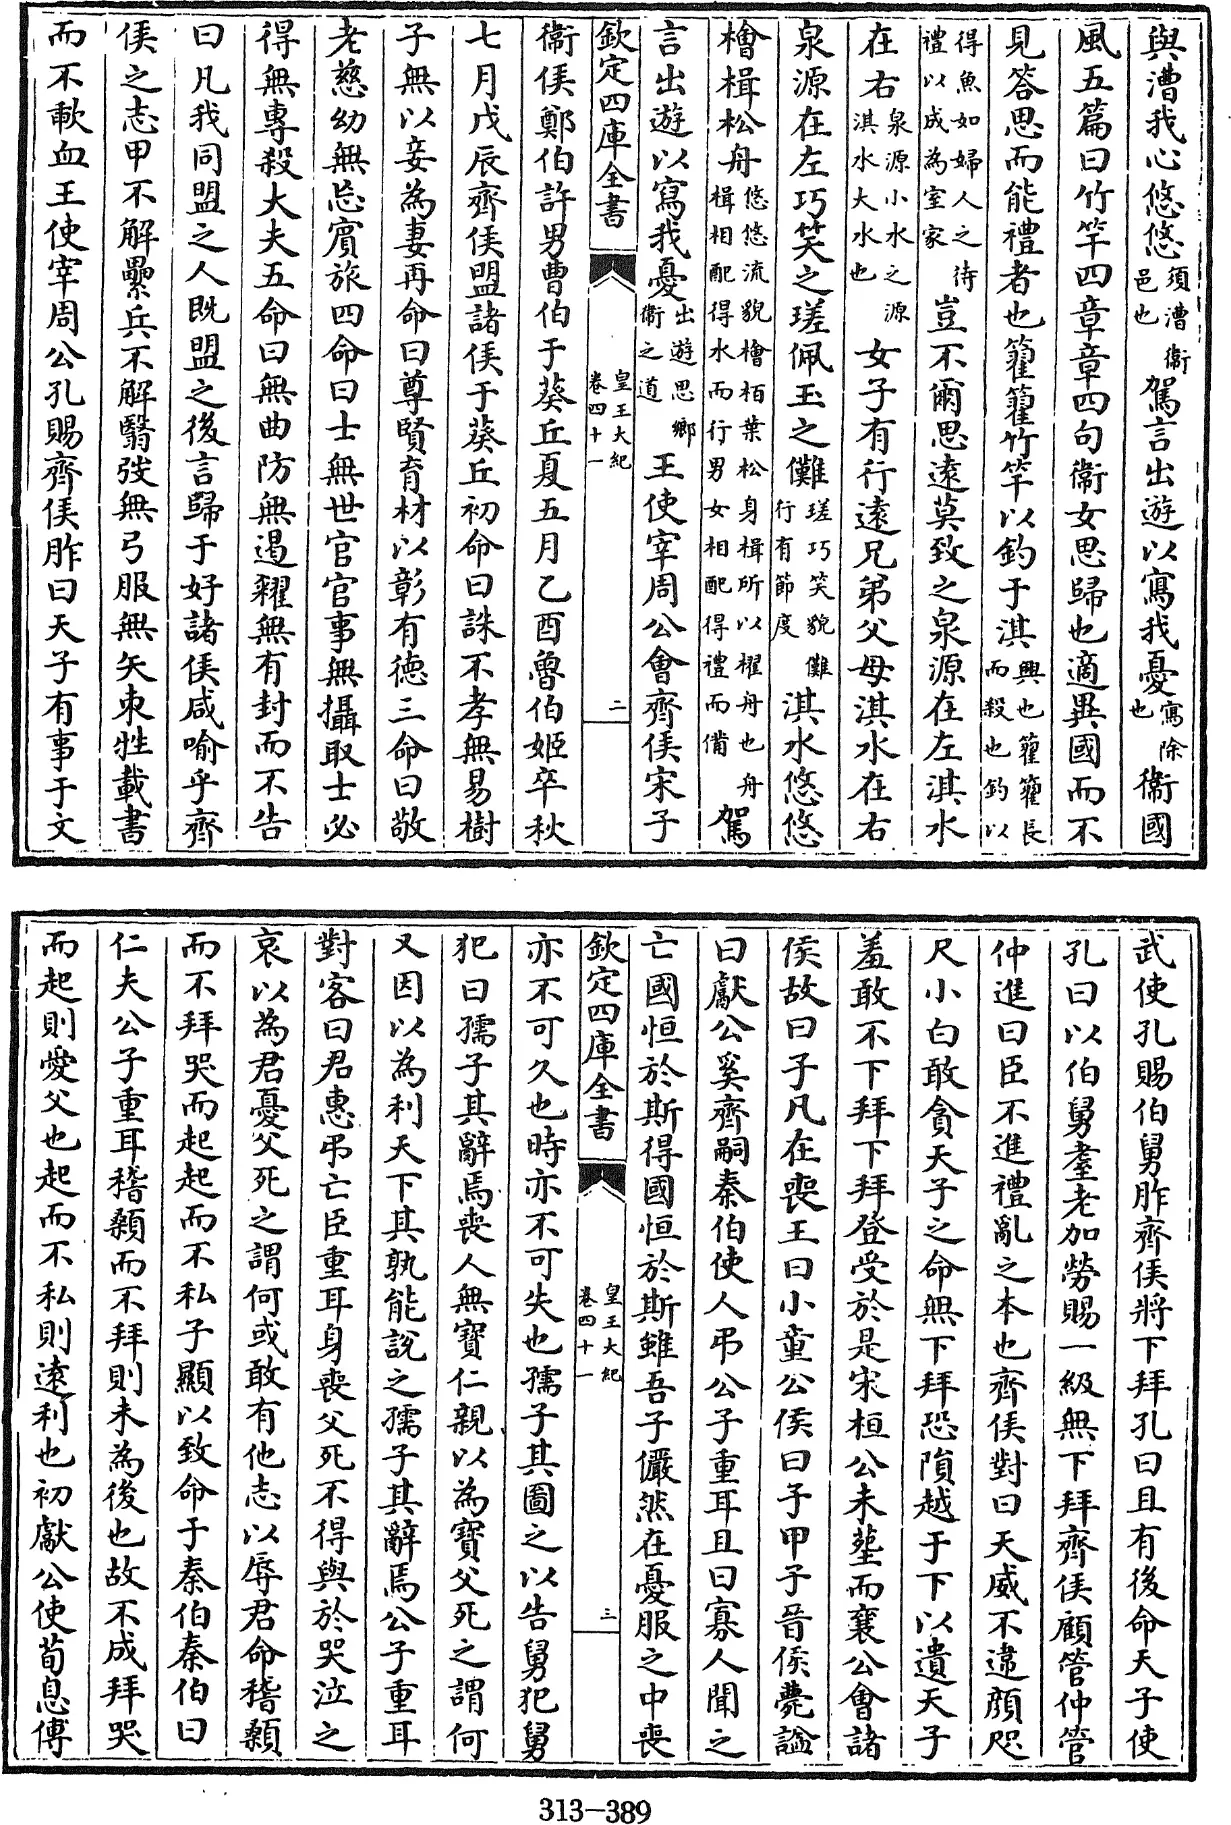 與漕我心悠悠須漕衞邑也駕言出遊以寫我憂寫除也衞國
風五篇曰竹竿四章章四句衞女思歸也適異國而不
見答思而能禮者也籊籊竹竿以釣于淇興也籊籊長而殺也釣以
得魚如婦人之待禮以成為室家豈不爾思遠莫致之泉源在左淇水
在右泉源小水之源淇水大水也女子有行遠兄弟父母淇水在右
泉源在左巧笑之瑳佩玉之儺瑳巧笑貌儺行有節度淇水悠悠
檜楫松舟悠悠流貌檜栢葉松身楫所以櫂舟也舟楫相配得水而行男女相配得禮而備駕
言出遊以寫我憂出遊思鄉衞之道王使宰周公會齊侯宋子
欽定四庫全書
皇王大紀
卷四十一
二
衞侯鄭伯許男曹伯于葵丘夏五月乙酉魯伯姬卒秋
七月戊辰齊侯盟諸侯于葵丘初命曰誅不孝無易樹
子無以妾為妻再命曰尊賢育材以彰有德三命曰敬
老慈幼無忘賓旅四命曰士無世官官事無攝取士必
得無專殺大夫五命曰無曲防無遏糴無有封而不告
曰凡我同盟之人既盟之後言歸于好諸侯咸喻乎齊
侯之志甲不解纍兵不解翳弢無弓服無矢束牲載書
而不歃血王使宰周公孔賜齊侯胙曰天子有事于文
武使孔賜伯舅胙齊侯將下拜孔曰且有後命天子使
孔曰以伯舅耋老加勞賜一級無下拜齊侯顧管仲管
仲進曰臣不進禮亂之本也齊侯對曰天威不違顔咫
尺小白敢貪天子之命無下拜恐隕越于下以遺天子
羞敢不下拜下拜登受於是宋桓公未塟而襄公會諸
侯故曰子凡在喪王曰小童公侯曰子甲子晉侯薨謚
曰獻公奚齊嗣秦伯使人弔公子重耳且曰寡人聞之
亡國恒於斯得國恒於斯雖吾子儼然在憂服之中喪
欽定四庫全書
皇王大紀
卷四十一
三
亦不可久也時亦不可失也孺子其圖之以告舅犯舅
犯曰孺子其辭焉喪人無寶仁親以為寶父死之謂何
又因以為利天下其孰能說之孺子其辭焉公子重耳
對客曰君惠弔亡臣重耳身喪父死不得與於哭泣之
哀以為君憂父死之謂何或敢有他志以辱君命稽顙
而不拜哭而起起而不私子顯以致命于秦伯秦伯曰
仁夫公子重耳稽顙而不拜則未為後也故不成拜哭
而起則愛父也起而不私則遠利也初獻公使荀息傅
313-389